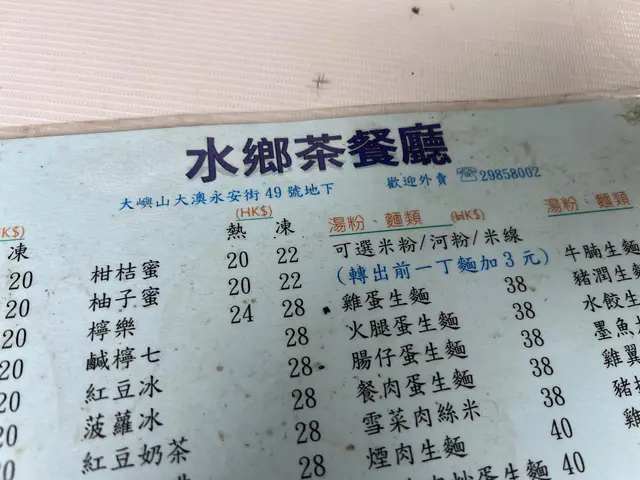 水鄉茶餐廳
大嶼山大澳永安街49號地下 歡迎外賣 ☎29858002
K$)
凍
20
20
20
20
20
20
20
(HK$)
熱 凍
柑桔蜜 20 22
柚子蜜 20 22
檸樂 24 28
鹹檸七 28
紅豆冰 28
菠蘿冰 28
紅豆奶茶 28
28
湯粉、麵類 (HK$)
可選米粉/河粉/米線
(轉出前一丁麵加3元)
雞蛋生麵 38
火腿蛋生麵 38
腸仔蛋生麵 38
餐肉蛋生麵 38
雪菜肉絲米 38
煙肉生麵 40
蛋生麵 40
湯粉、麵類
牛腩生麵
豬潤生麵
水餃生
墨魚
雞翼
豬
雞